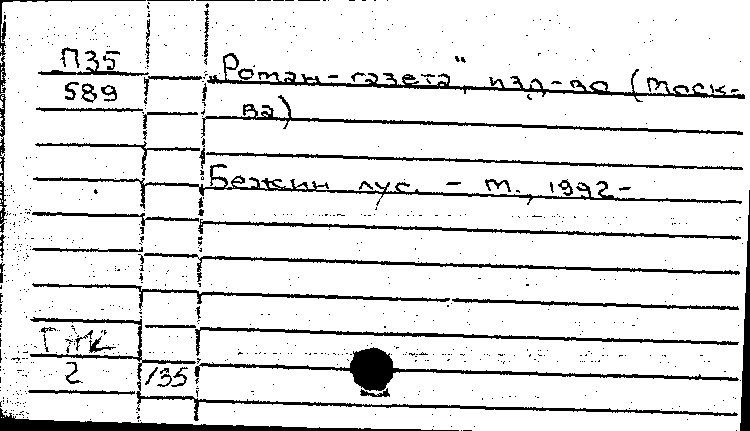 П35
589
„Роман-газета“, изд-во (Моск-
ва)
Бежин луг. - М., 1992-
ГЖК
2 135